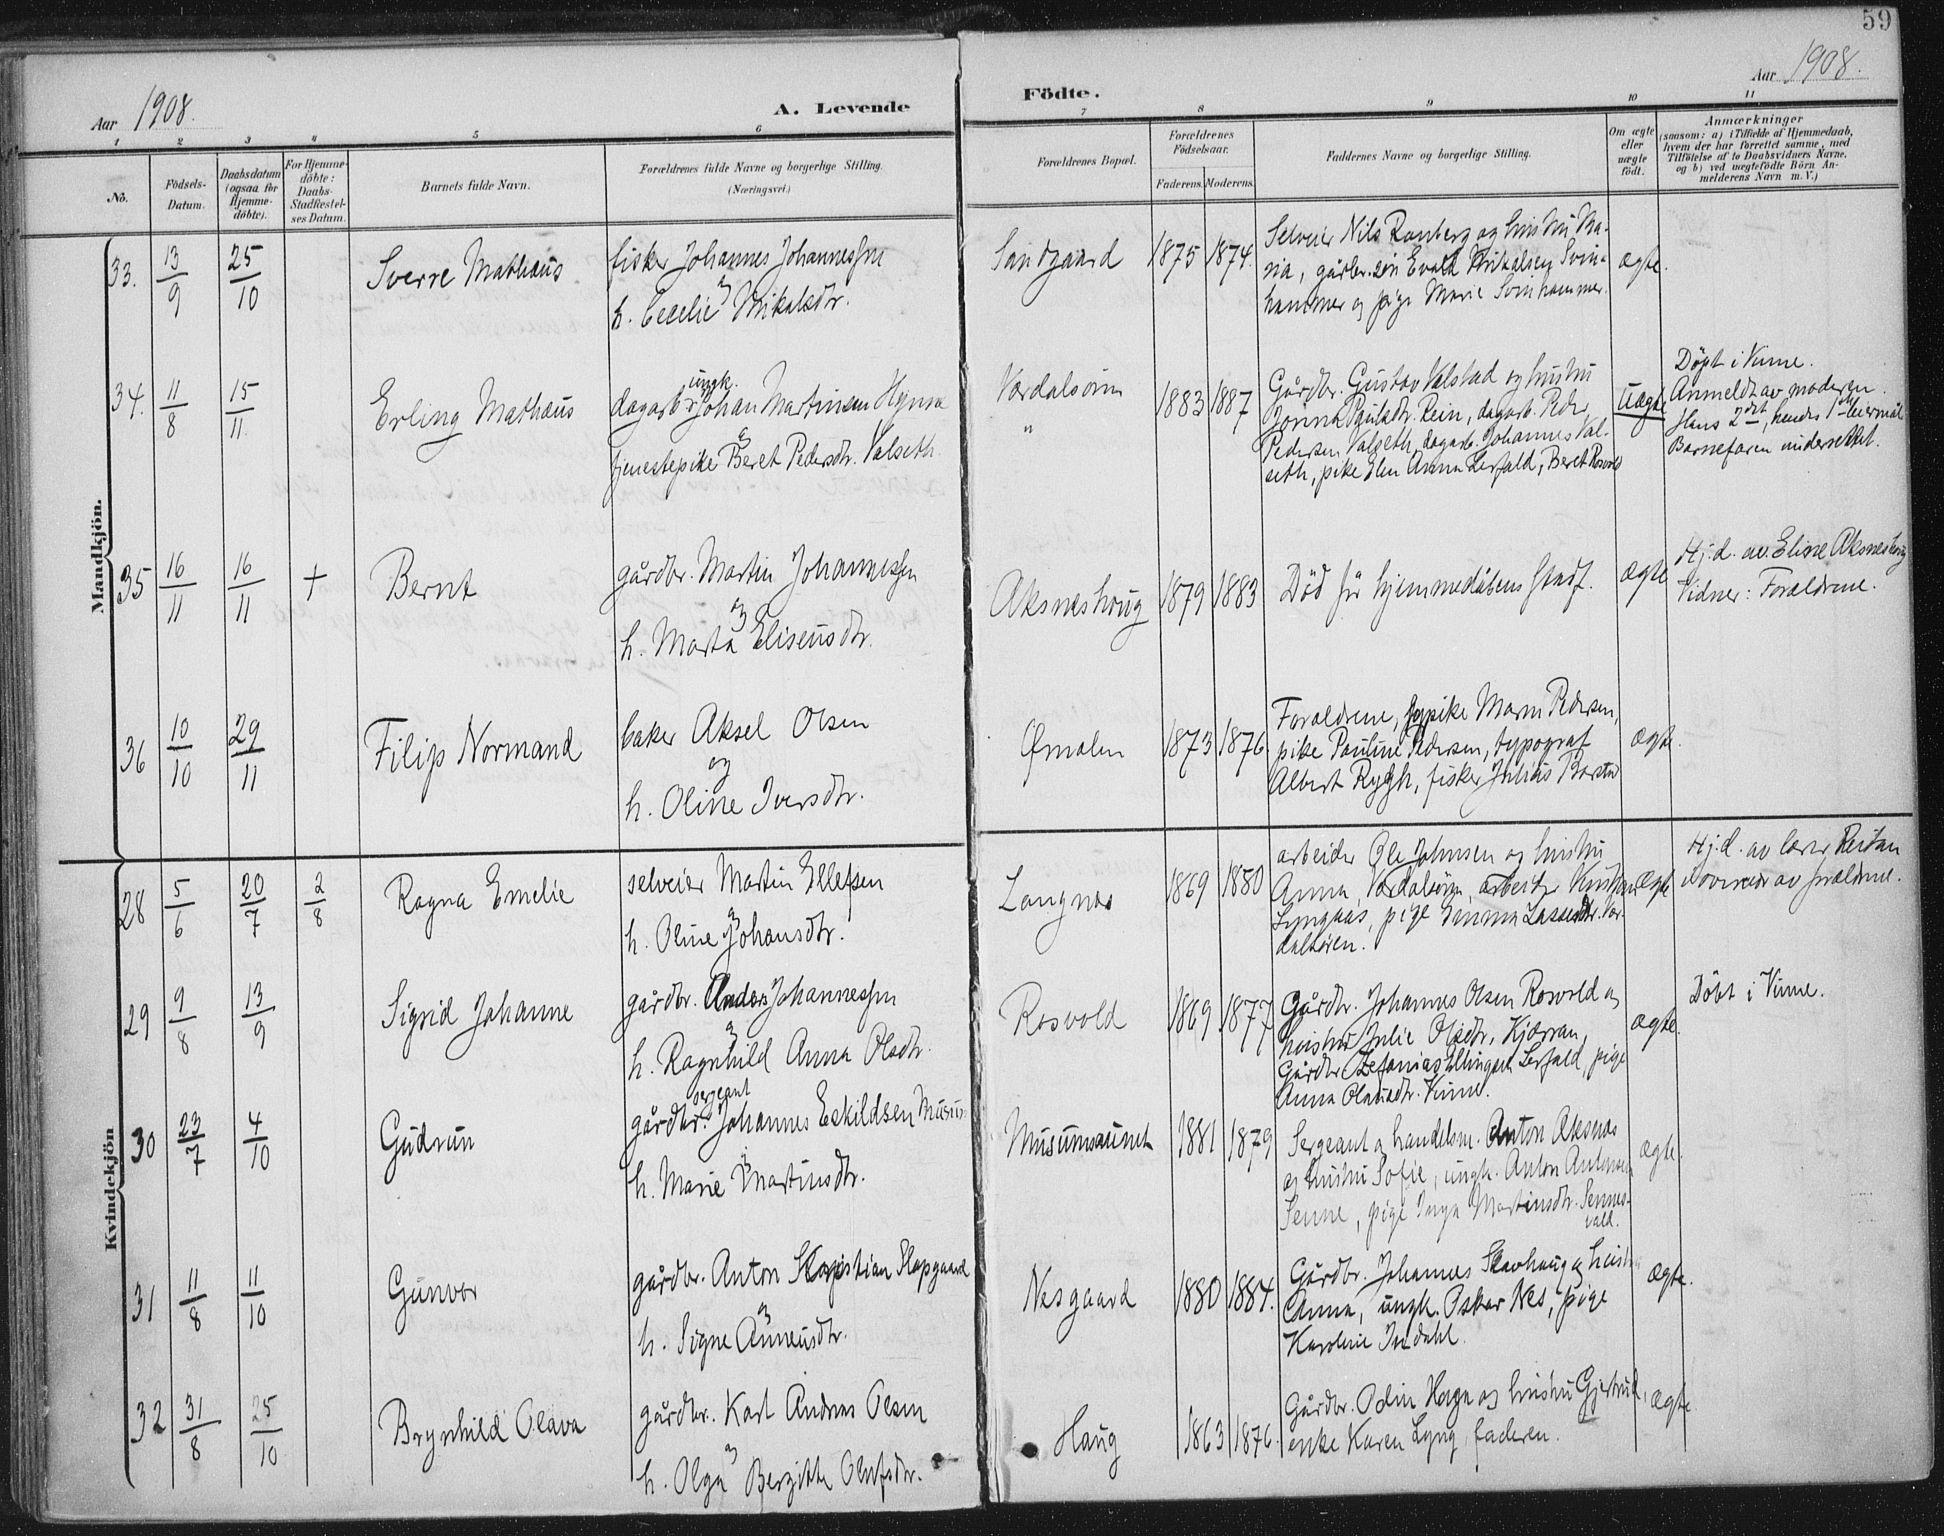 59
Aar 1908.
A. Levende
Födte.
Aar 1908.
1 2 3 4 5 6 7 8 9 10 11
No.
Födsels-Datum.
Daabsdatum (ogsaa for Hjemmedöbte).
For Hjemmedöbte: Daabs-Stadfæstelses Datum.
Barnets fulde Navn.
Forældrenes fulde Navne og borgerlige Stilling.
(Næringsvei.)
Forældrenes Bopæl.
Forældrenes Födselsaar.
Faderens. Moderens.
Faddernes Navne og borgerlige Stilling.
Om ægte eller uægte födt.
Anmærkninger
(saasom: a) i Tilfælde af Hjemmedaab, hvem der har forrettet samme, med Tilföielse af to Daabsvidners Navne. og b) ved uægtefödte Börn Anmelderens Navn m. V.)
Mandkjön.
33. 13/9 25/10 Sverre Mathæus
fisker Johannes Johannessen
og
h. Cecelie Mikalsdtr.
Sandgaard 1875 1874.
Selveier Nils Ranberg og hustru Ma-
ria, gårbr.søn Evald Mikalsen Svin-
hammer og pige Marie Svinhammer.
ægte.
34. 11/8 15/11 Erling Mathæus
ungk.
dagarb. Johan Martinsen
og
tjenestepike Beret Pedersdtr. Valseth.
Værdalsøren
"
1883 1887
Gårdbr. Gustav Valstad og hustru
Paulsdtr. Rein, dagarb. Peder
Pedersen Valseth, dagarb. Johannes Val-
seth, pike Elen Anna Lerfald, Beret Rosvold
Uægte
Døpt i Vinne.
Anmeldt av moderen.
Hans 2det, hendes 1ste leiermål
Barnefaren underrettet.
35 16/11 16/11 + Bernt
gårdbr. Martin Johannessen
og
h. Marta Eliseusdtr.
Aksneshoug 1879 1883
Død før hjemmedåbens stadf.
ægte
Hj.d. av Eline Aksneshoug
Vidner: Forældrene.
36 10/10 29/11 Filip Normand
baker Aksel Olsen
og
h. Oline Iversdtr.
Ørmelen 1873 1876.
Forældrene, pike Marn Pedersen,
pike Pauline Pedersen, typograf
Albert Rygh, fisker Julius Borstad
ægte.
Kvindekjön
28 5/6 20/7 2/8 Ragna Emelie
selveier Martin Ellefsen
og
h. Oline Johansdtr.
Langnes 1869 1880
arbeider Ole Johnsen og hustru
Anna, Værdalsøren arbeider Kristian
Lyngaas, pige Emma Lassesdtr. Vær-
dalsøren.
ægte
Hj.d. av lærer Reitan
av forældrene.
29 9/8 13/9 Sigrid Johanne
gårdbr. Anders Johannessen
og
h. Ragnhild Anna Olsdtr.
Rosvold 1869 1877
Gårdbr. Johannes Olsen Rosvold og
hustru Julie Olsdtr. Kjærran,
Gårdbr. Zefanias Ellingsen Lerfald, pige
Anna Olausdtr. Vinne.
ægte.
Döbt i Vinne.
30 23/7 4/10 Gudrun
sergeant
gårdbr. Johannes Eskildsen Musum
og
h. Marie Martinsdtr.
Musumsaunet 1881 1879
Sergeant og handelsm. Anton Aksnes
og hustru Sofie, ungk. Anton Antonsen
Senne, pige Inga Martinsdtr. Sennes-
vald.
ægte.
31 11/8 11/10 Gunvor
gårdbr. Anton Kristian Slapgaard
og
h. Signe Anneusdtr.
Nesgaard 1880 1884.
Gårdbr. Johannes Skavhaug og hustru
Anna, ungk. Oskar Nes, pige
Karoline Indahl.
ægte.
32 31/8 25/10 Brynhild Olava
gårdbr. Karl Andreas Olsen
og
h. Olga Bergitte Olufsdtr.
Haug 1863 1876.
Gårdbr. Odin Haga og hustru Gjertrud,
enke Karen Lyng, faderen.
ægte